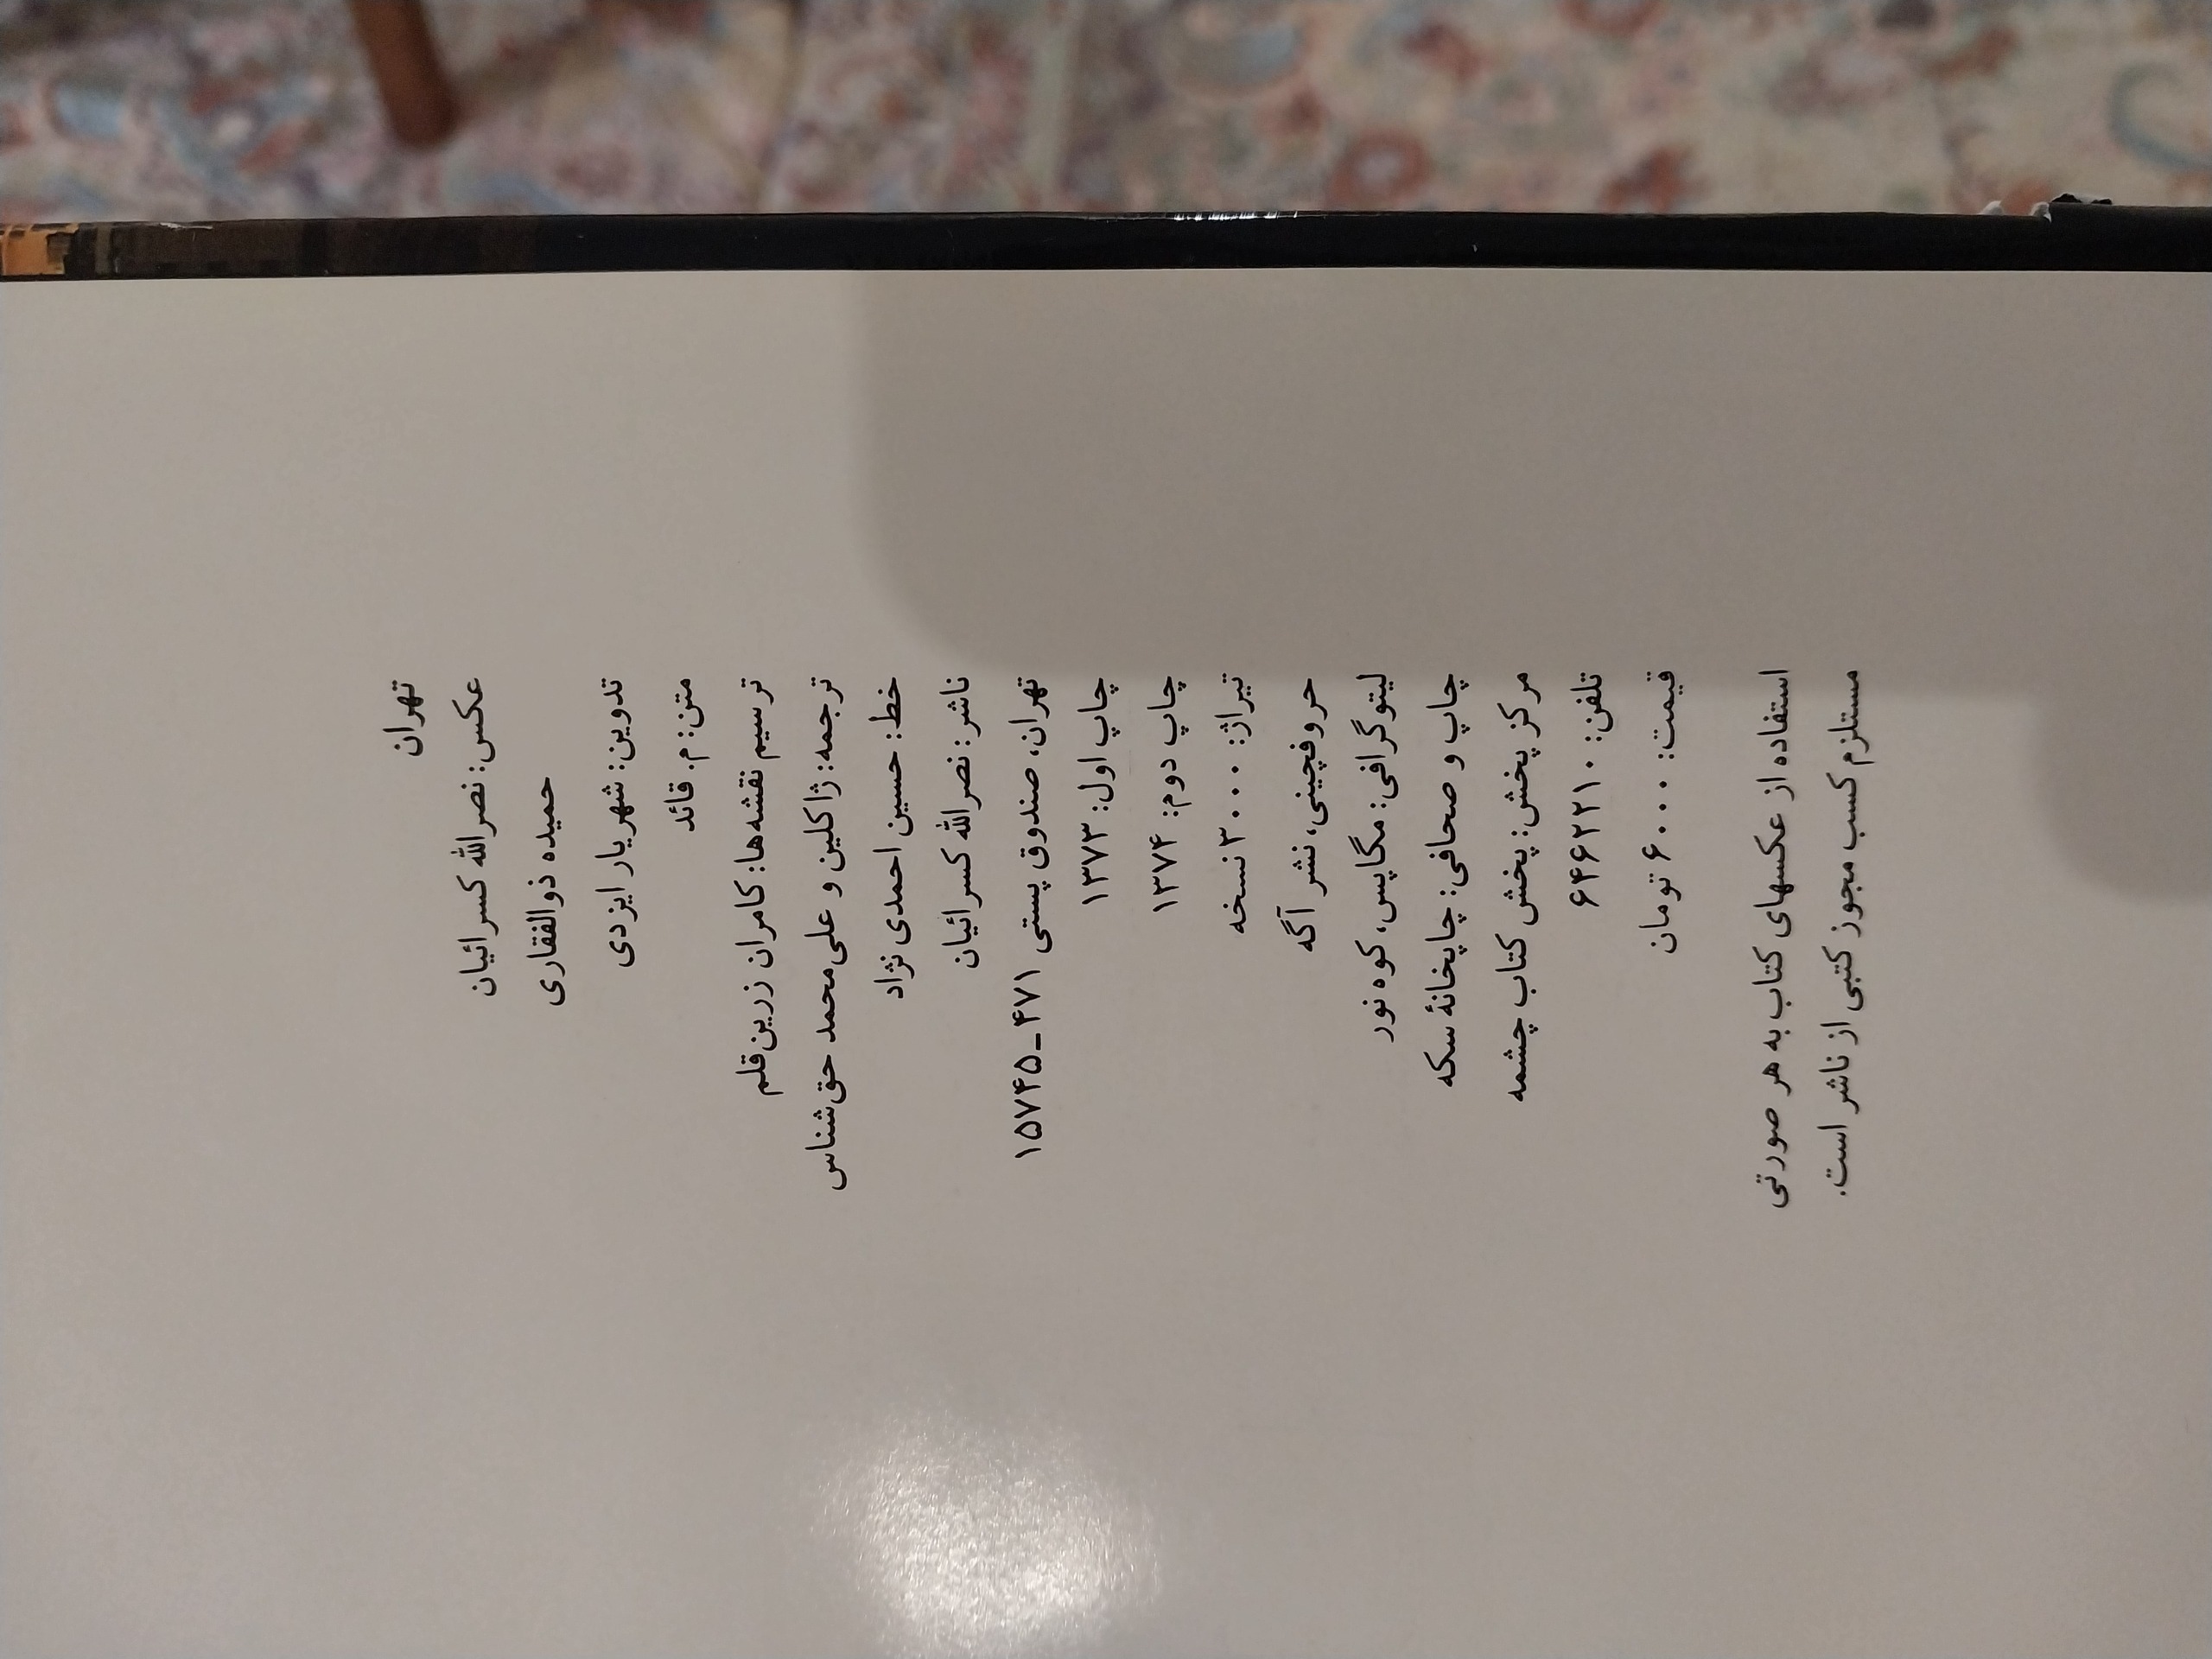 تهران
عکس: نصرالله کسرائیان
حمیده ذوالفقاری
تدوین: شهریار ایزدی
متن: م. قائد
ترسیم نقشه‌ها: کامران زرین‌قلم
ترجمه: ژاکلین و علی‌محمد حق‌شناس
خط: حسین احمدی نژاد
ناشر: نصرالله کسرائیان
تهران، صندوق پستی ۴۷۱ـ۱۵۷۴۵
چاپ اول: ۱۳۷۳
چاپ دوم: ۱۳۷۴
تیراژ: ۳۰۰۰ نسخه
حروفچینی، نشر آگه
لیتوگرافی: مگاپس، کوه نور
چاپ و صحافی: چاپخانهٔ سکه
مرکز پخش: پخش کتاب چشمه
تلفن: ۶۴۶۲۲۱۰
قیمت: ۶۰۰۰ تومان
استفاده از عکسهای کتاب به هر صورتی
مستلزم کسب مجوز کتبی از ناشر است.